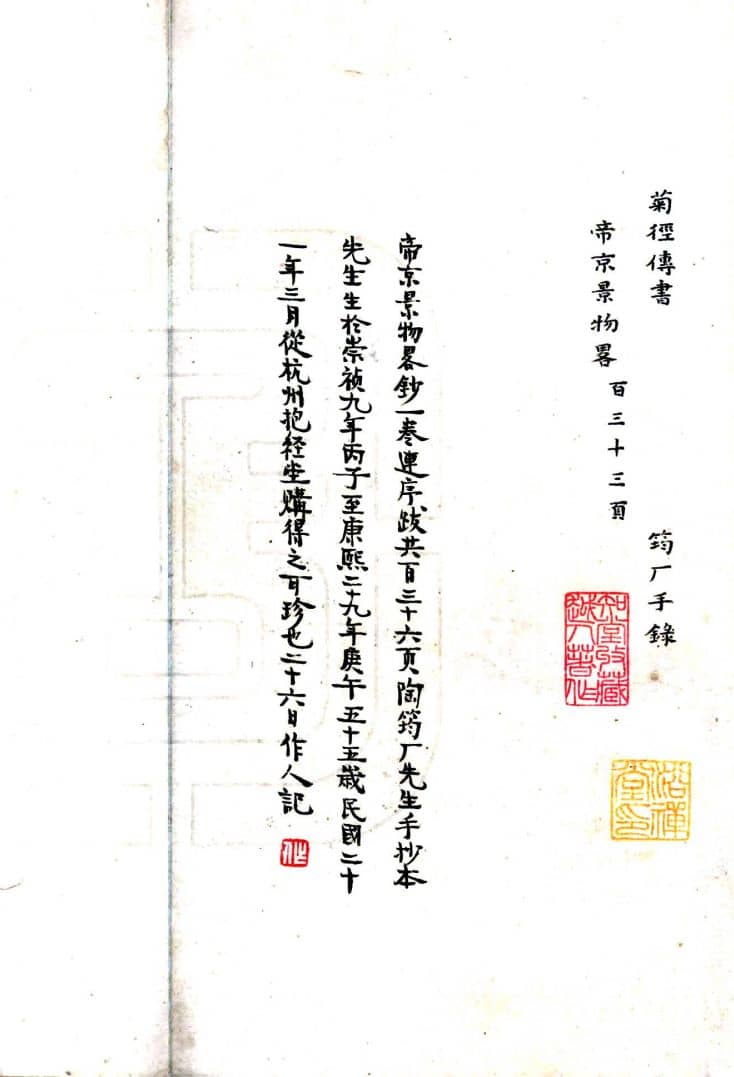 菊徑傳書
筠厂手錄
帝京景物畧
百三十三頁
帝京景物畧鈔一卷連序跋共百三十六页陶筠厂先生手抄本
先生生於崇禎九年丙子至康熙二十九年庚午五十五歲民國二十
一年三月從杭州抱经堂購得之可珍也二十六日作人記
知堂收藏
越人著作
浴禪
堂印
作